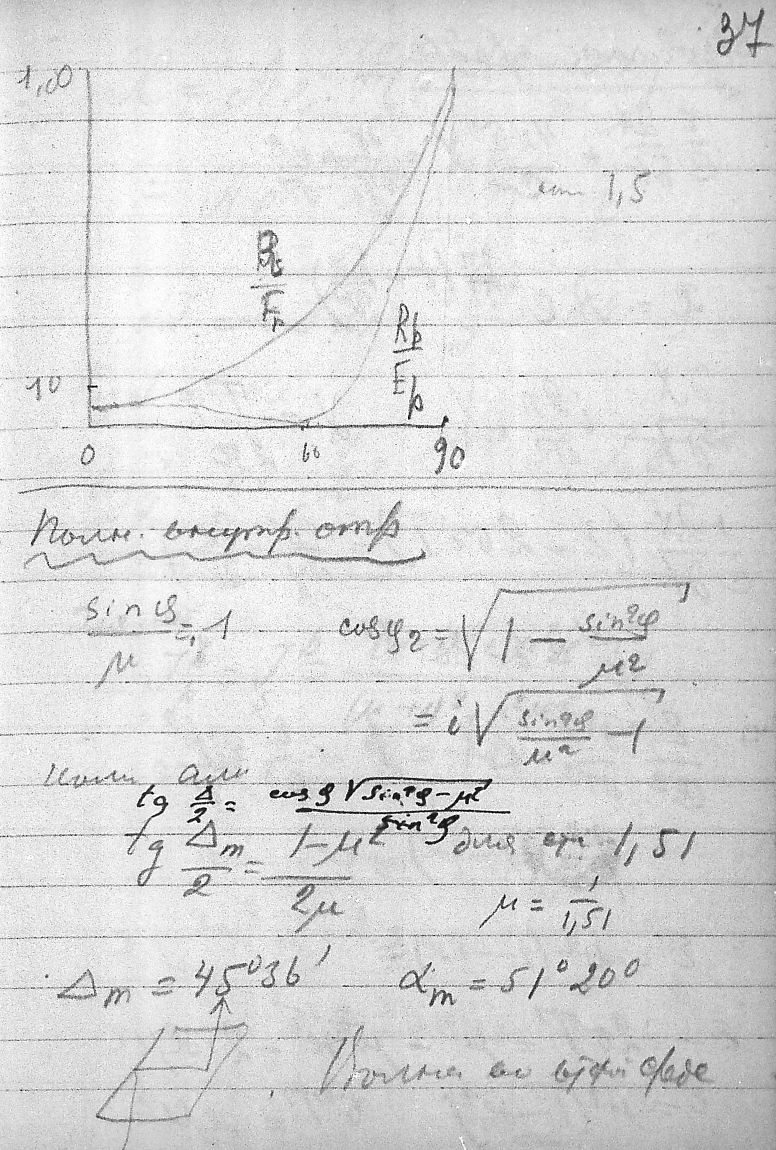 37
1,00
1,5
Rs/Es
Rp/Ep
10
0 60 90
Полн. внутр. отр
sin φ/μ = 1 cos φ₂ = √(1 − sin²φ/μ²)
= i√(sin²φ/μ² − 1)
tg Δ/2 = cos φ √(sin²φ − μ²)/sin²φ
tg Δm/2 = 1−μ²/2μ для ст. 1,51
μ = 1/1,51
Δm = 45°36' αm = 51°20°
Волна во второй среде